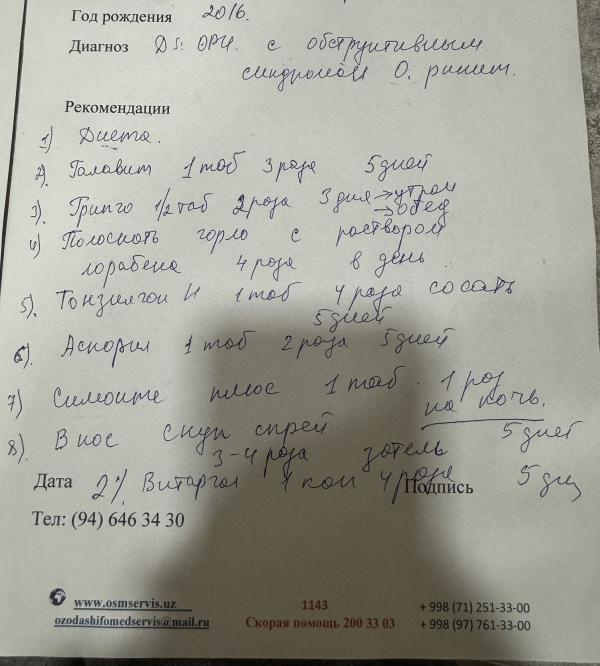 Год рождения 2016.
Диагноз Ds: ОРИ. с обструктивным
синдромом О. ринит.
Рекомендации
1) Диета.
2) Галавит 1 таб 3 раза 5 дней
3) Грипго 1/2 таб 2 раза 3 дня → утром
→ обед
4) Полоскать горло с раствором
лорабена 4 раза в день
5). Тонзилгон Н 1 таб 4 раза сосать
5 дней
6). Аскорил 1 таб 2 раза 5 дней
7) Симоите плюс 1 таб. 1 раз
на ночь.
8). В нос снуп спрей 5 дней
3-4 раза затель
Дата 2% Витаргол 1 кап 4 раза Подпись 5 дн
Тел: (94) 646 34 30
www.osmservis.uz 1143 + 998 (71) 251-33-00
ozodashifomedservis@mail.ru Скорая помощь 200 33 03 + 998 (97) 761-33-00